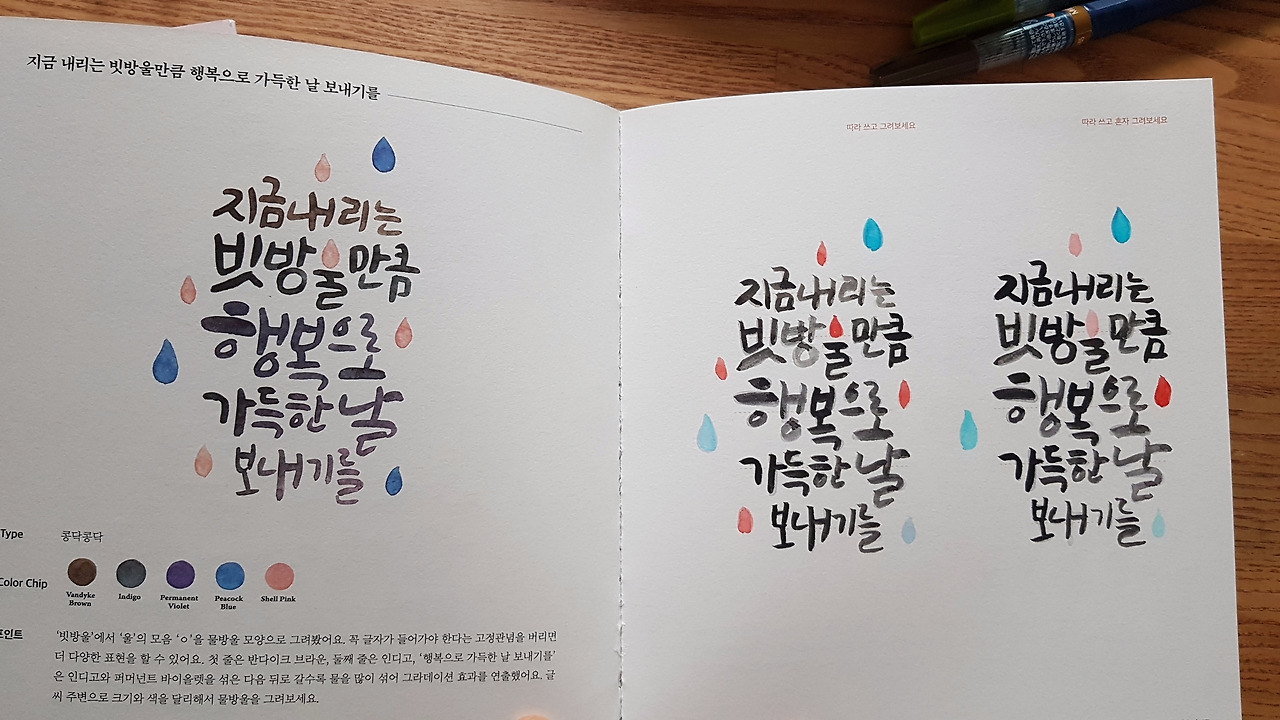 지금 내리는 빗방울만큼 행복으로 가득한 날 보내기를
지금 내리는
빗방울만큼
행복으로
가득한 날
보내기를
Type 콩닥콩닥
Color Chip
Vandyke Brown
Indigo
Permanent Violet
Peacock Blue
Shell Pink
포인트
'빗방울'에서 '울'의 모음 'ㅇ'을 물방울 모양으로 그려봤어요. 꼭 글자가 들어가야 한다는 고정관념을 버리면
더 다양한 표현을 할 수 있어요. 첫 줄은 반다이크 브라운, 둘째 줄은 인디고, '행복으로 가득한 날 보내기를'
은 인디고와 퍼머넌트 바이올렛을 섞은 다음 뒤로 갈수록 물을 많이 섞어 그라데이션 효과를 연출했어요. 글
씨 주변으로 크기와 색을 달리해서 물방울을 그려보세요.
따라 쓰고 그려보세요
지금 내리는
빗방울만큼
행복으로
가득한 날
보내기를
따라 쓰고 혼자 그려보세요
지금 내리는
빗방울만큼
행복으로
가득한 날
보내기를